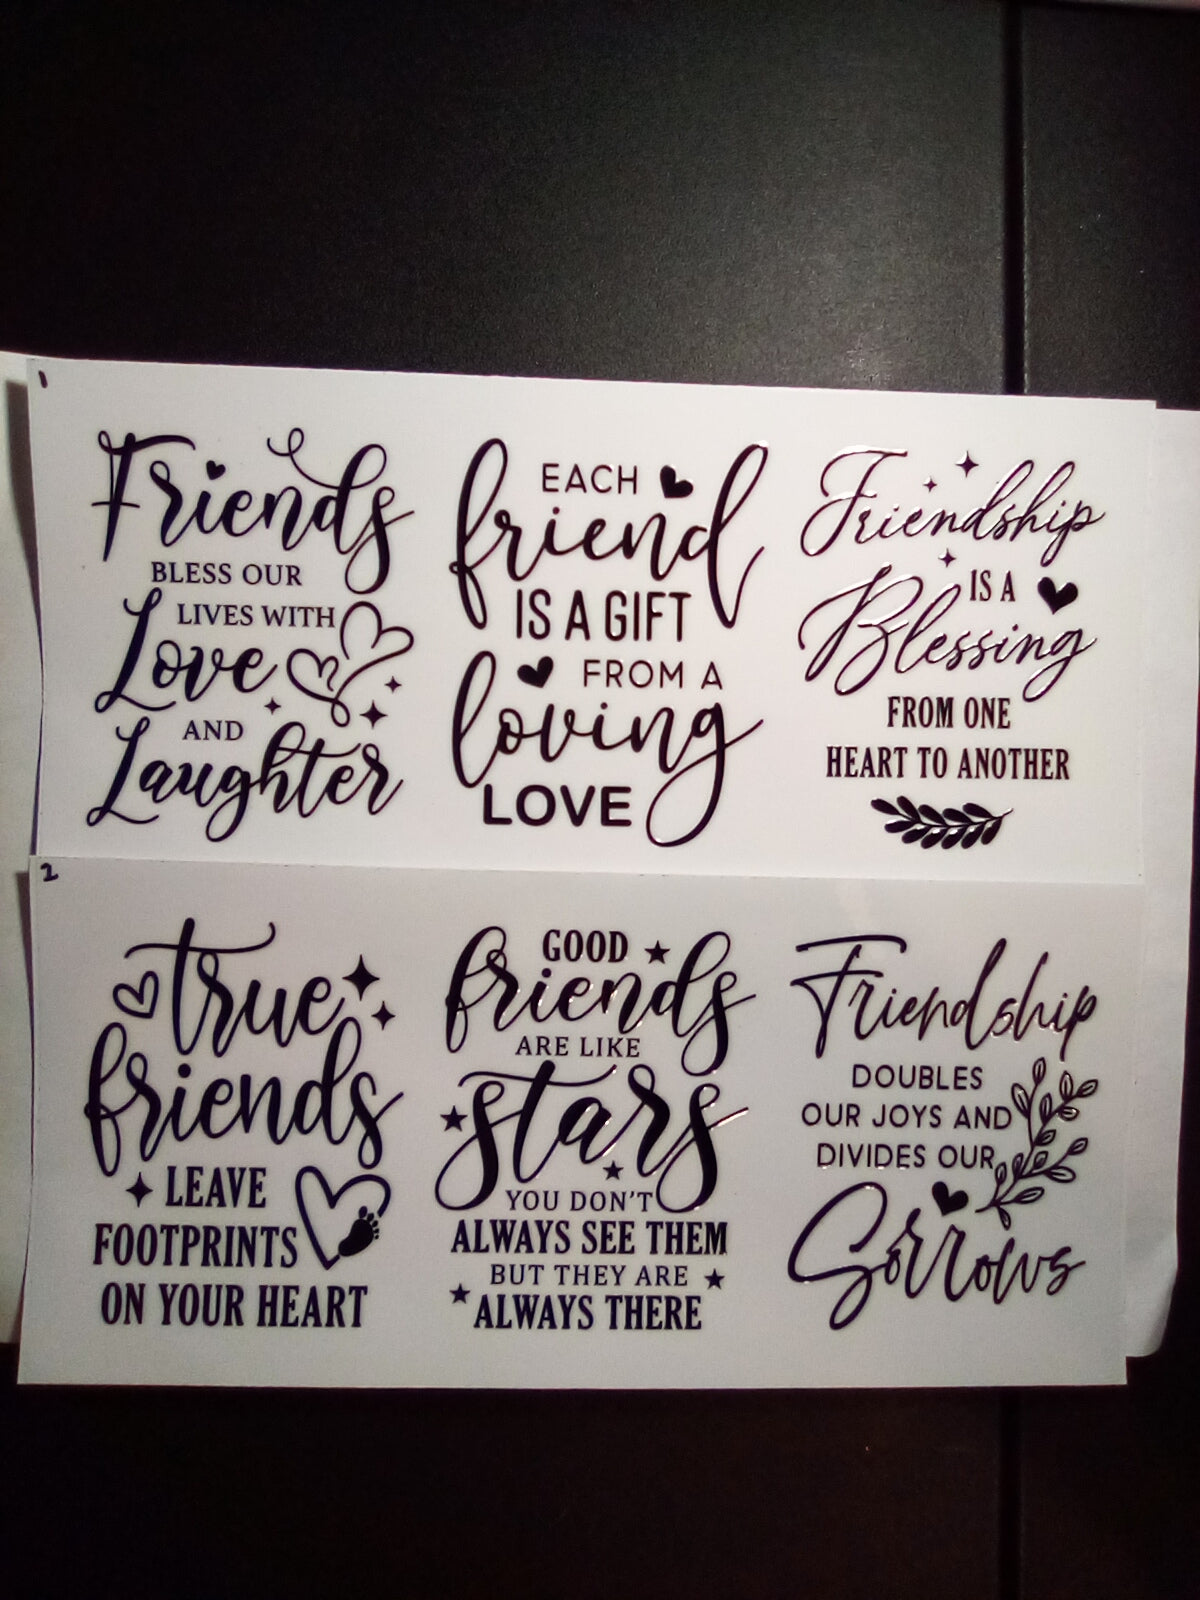 1
Friends
BLESS OUR
LIVES WITH
Love
AND
Laughter
EACH
friend
IS A GIFT
FROM A
loving
LOVE
Friendship
IS A
Blessing
FROM ONE
HEART TO ANOTHER
2
true
friends
LEAVE
FOOTPRINTS
ON YOUR HEART
GOOD
friends
ARE LIKE
stars
YOU DON'T
ALWAYS SEE THEM
BUT THEY ARE
ALWAYS THERE
Friendship
DOUBLES
OUR JOYS AND
DIVIDES OUR
Sorrows